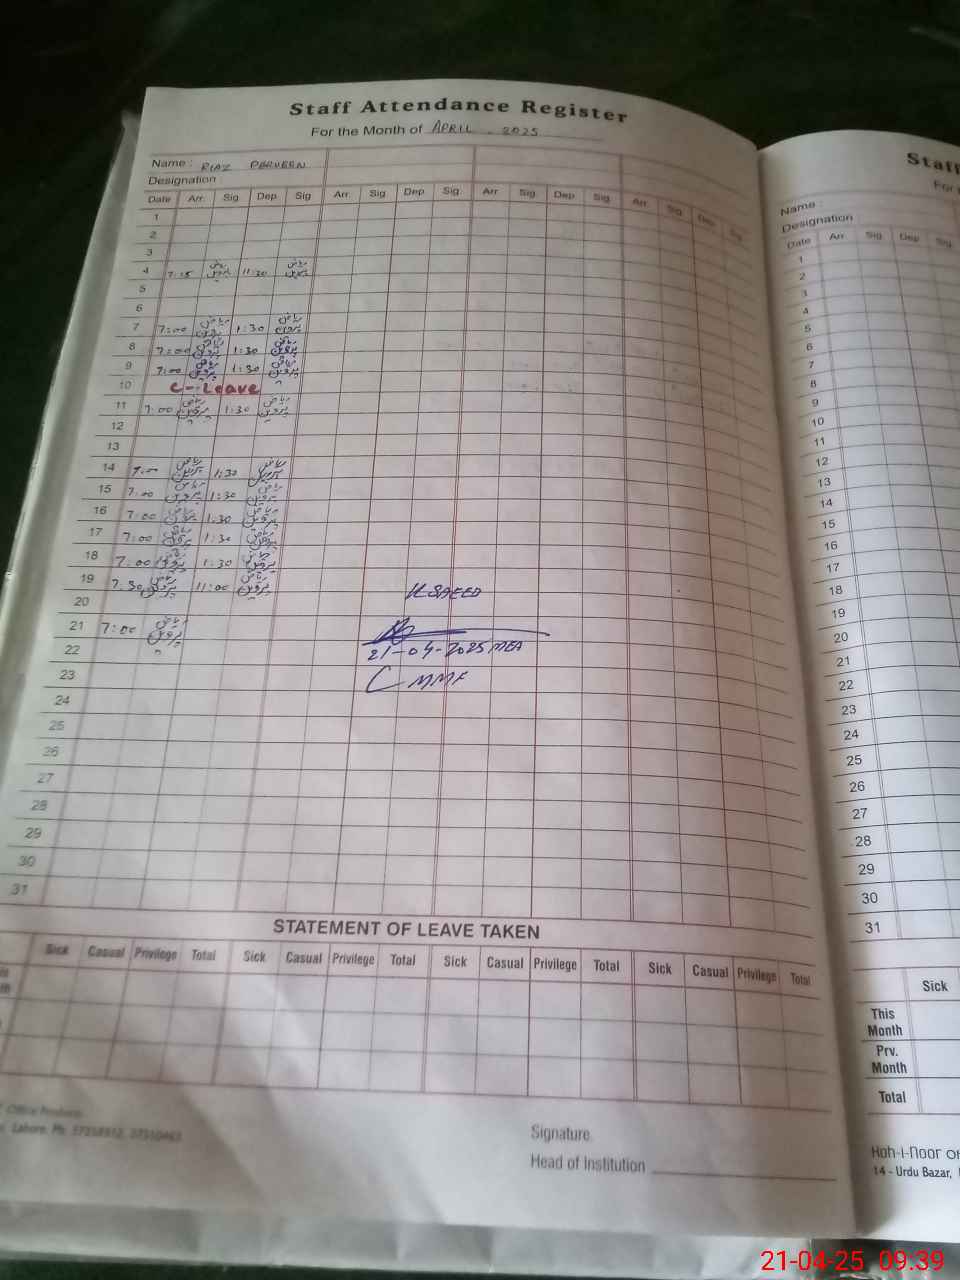 Staff Attendance Register
For the Month of APRIL - 2025
Name : RIAZ PERVEEN
Designation
Date Arr. Sig. Dep. Sig. Arr. Sig. Dep. Sig. Arr. Sig. Dep. Sig. Arr. Sig. Dep. Sig.
1
2
3
4 7:15 ریاض پروین 11:20 ریاض پروین
5
6
7 7:00 ریاض پروین 1:30 ریاض پروین
8 7:00 ریاض پروین 1:30 ریاض پروین
9 7:00 ریاض پروین 1:30 ریاض پروین
10 C-Leave
11 7:00 ریاض پروین 1:30 ریاض پروین
12
13
14 7:00 ریاض پروین 1:30 ریاض پروین
15 7:00 ریاض پروین 1:30 ریاض پروین
16 7:00 ریاض پروین 1:30 ریاض پروین
17 7:00 ریاض پروین 1:30 ریاض پروین
18 7:00 ریاض پروین 1:30 ریاض پروین
19 7:30 ریاض پروین 11:00 ریاض پروین
20
21 7:00 ریاض پروین
22
23
24
25
26
27
28
29
30
31
K SAEED
21-04-2025 MEA
MMF
STATEMENT OF LEAVE TAKEN
Sick Casual Privilege Total Sick Casual Privilege Total Sick Casual Privilege Total Sick Casual Privilege Total
Office Products
Lahore. Ph:
Signature
Head of Institution
Staff
For
Name :
Designation
Date Arr. Sig. Dep. Sig.
1
2
3
4
5
6
7
8
9
10
11
12
13
14
15
16
17
18
19
20
21
22
23
24
25
26
27
28
29
30
31
Sick
This Month
Prv. Month
Total
Koh-i-Noor
14 - Urdu Bazar,
21-04-25 09:39